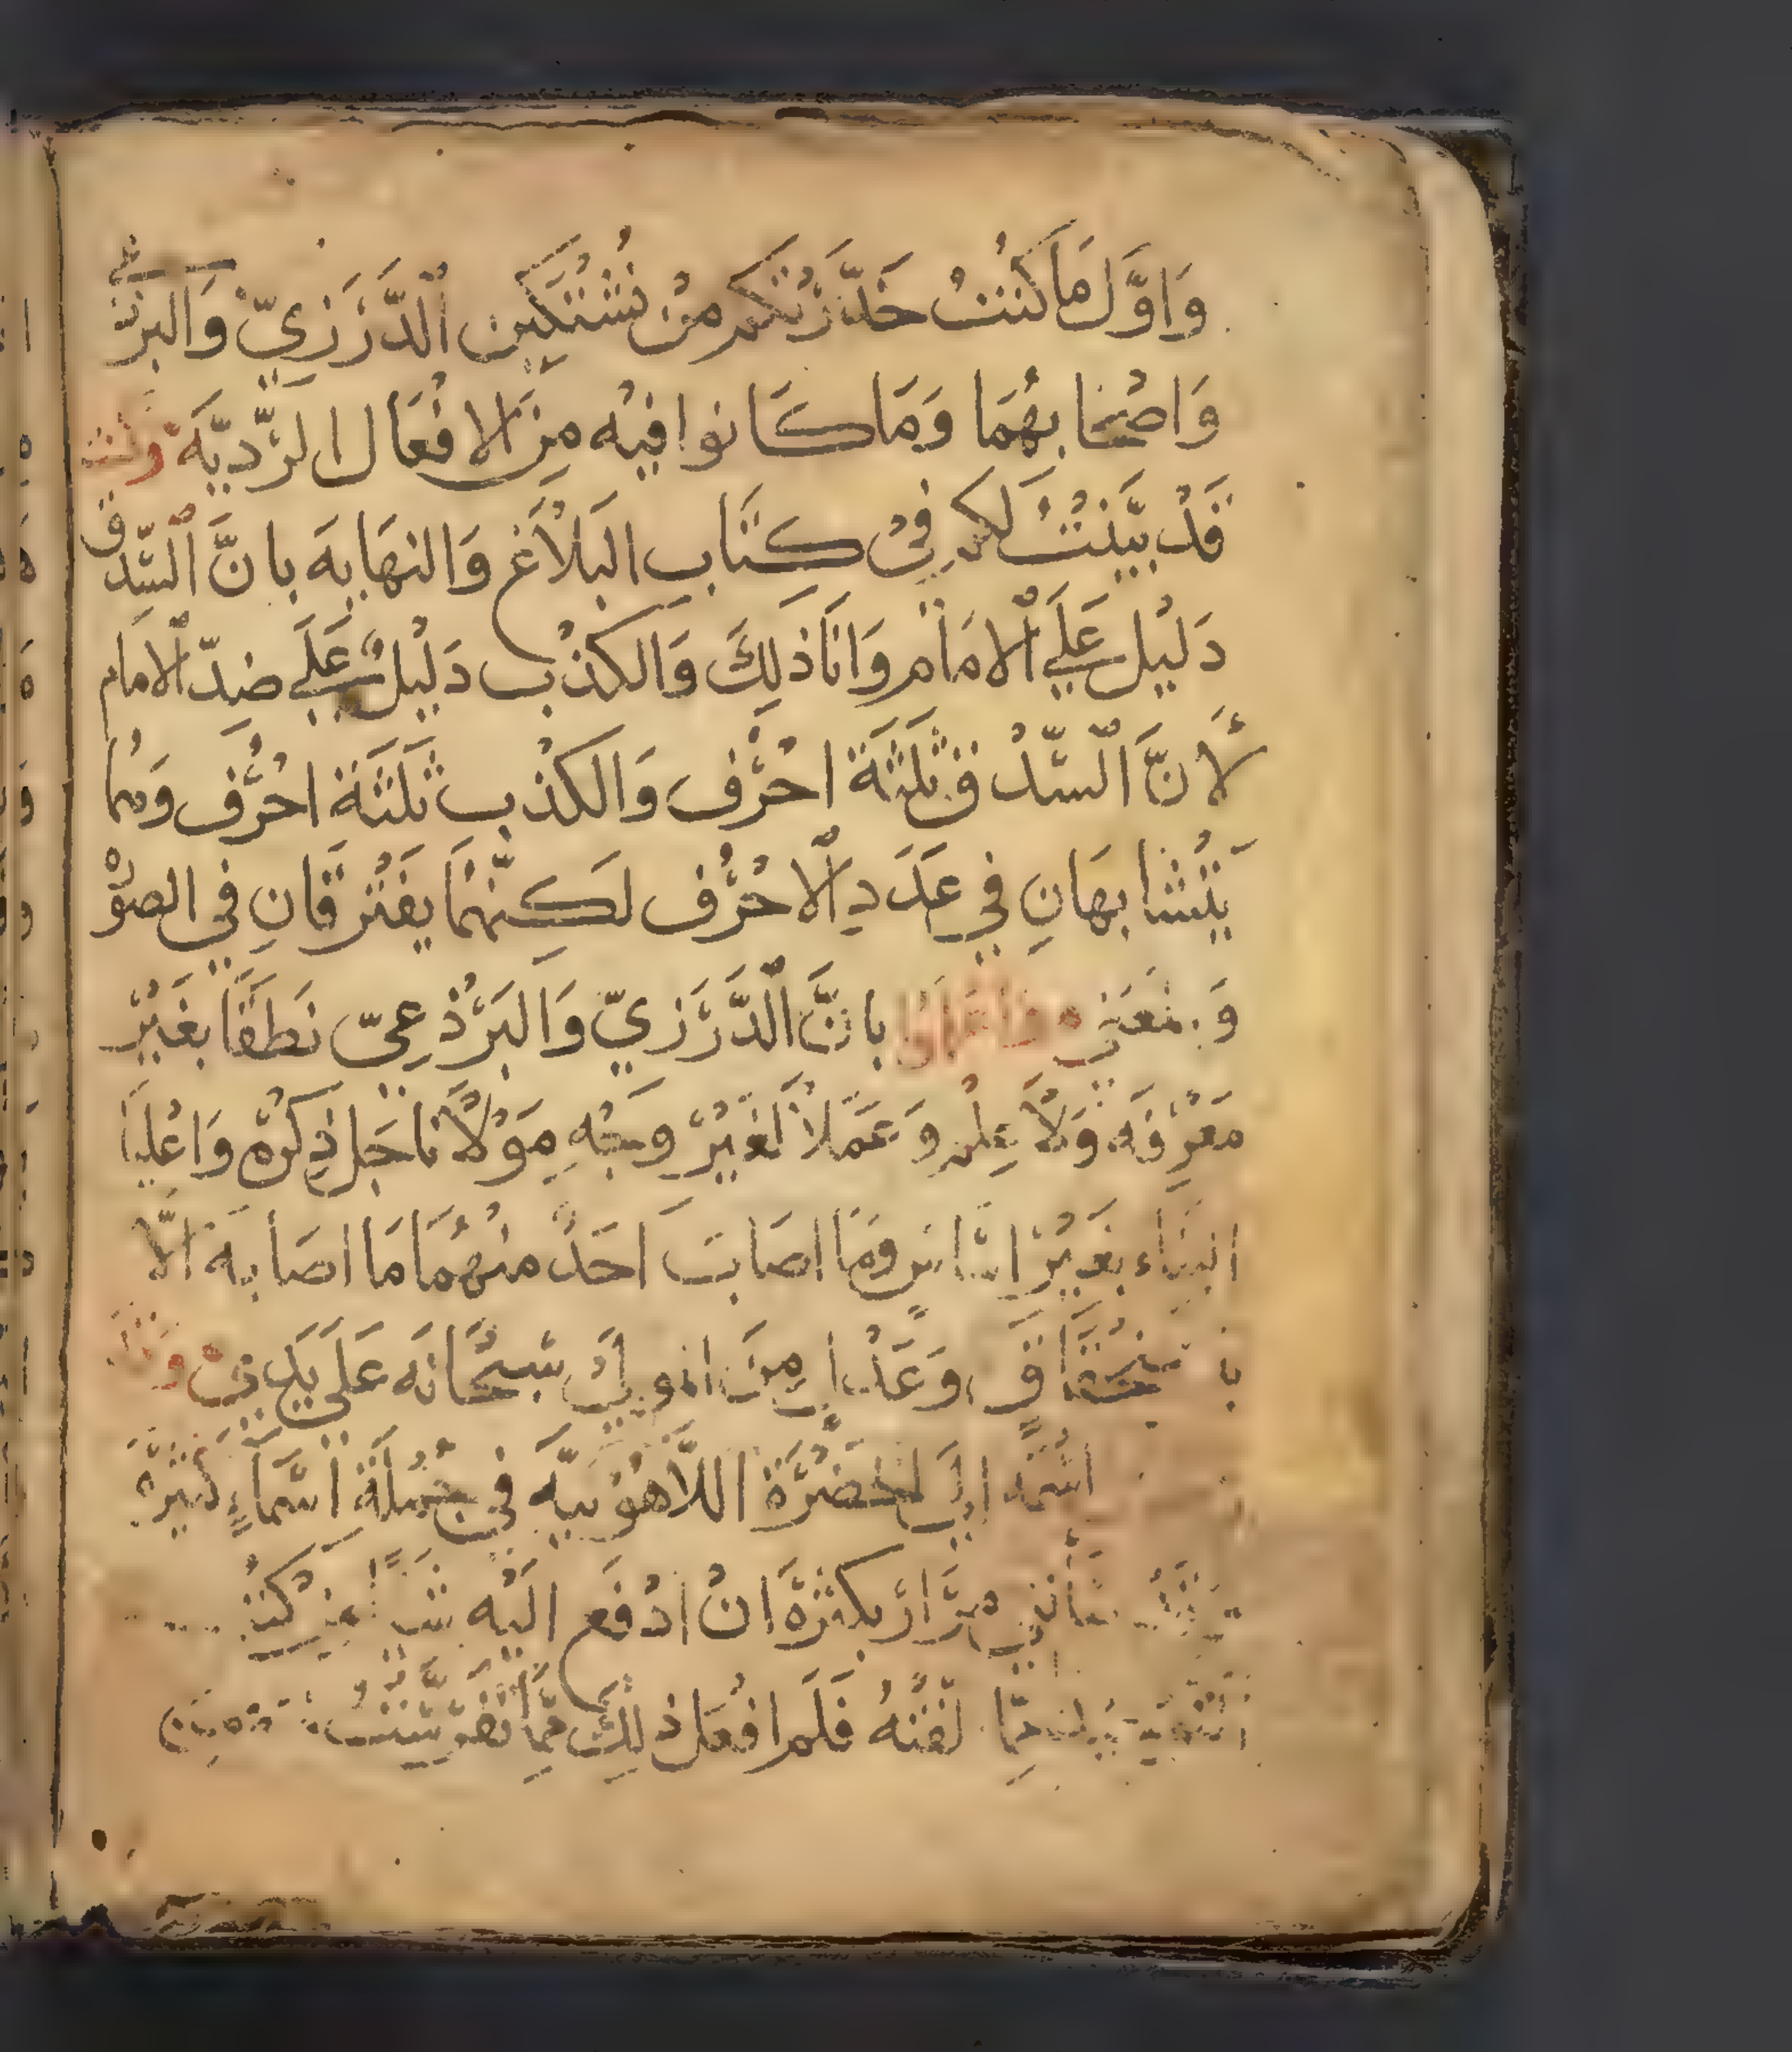 وَاوَّل مَا كُنتُ حَذَّرْتكم مِنْ نُشْتَكِين الدَّرَزيّ وَالبرْذعي
وَاصْحَابهُمَا وَمَا كَانوا فيْه مِنَ الافْعَال الرَّديَّة
قَدْ بيَّنْتُ لكم فِيْ كتَاب البَلَاغ وَالنهَايه بانَّ السِّدق
دَليْل عَلَى الامَام وَانَا ذَلِكَ وَالكذْب دَليْلٌ عَلَى ضِدّ الامَام
لَأنَّ السِّدْق ثلثَة احْرُف وَالكذْب ثَلَثَة احْرُف وَهُما
يَتَشَابهَانِ في عَدَدِ الاحْرُف لَكنَّهُمَا يفْتَرقَانِ في الصوْ
بانَّ الدَّرَزيّ وَالبَرْذعيّ نَطقَا بغَيْر
مَعْرِفَه وَلَا عِلْم وَعَمَلَا لغَيْر وجْهِ مَوْلَانَا جَل ذِكرْه وَاعْليَا
ابنَاء بغَيْر اسَاس وَمَا اصَابَ احَدٌ منْهُمَا مَا اصَابهُ الَّا
باسْتحْقَاقٍ وَعَدْلٍ مِنَ المَوْلَى سبْحَانَه عَلَى يَدِي
اسْمه الَى الحَضْرَة اللَّاهُوتيَّه في جُمْلَة اسْمَاءٍ كَثيْرَة
مرَارًا بكثْرَة انْ ادْفَع الَيْه شَيْأً مِنْ كتب
فَلَم افْعَل ذلِكَ ممَّا تَفَرَّسْتُ